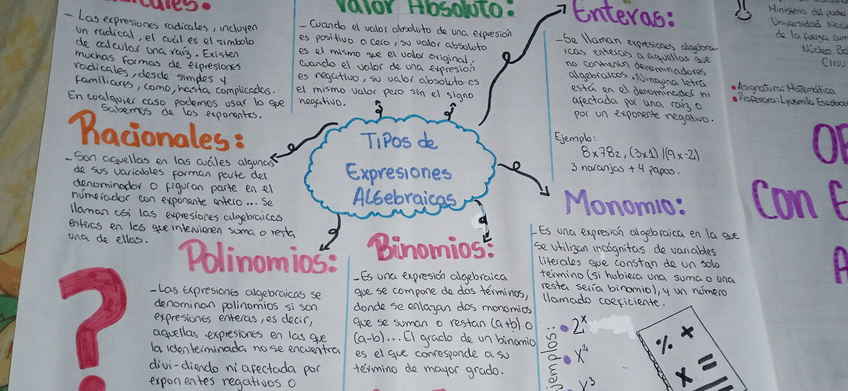 Radicales:
- Las expresiones radicales, incluyen
un radical, el cuál es el simbolo
de calcular una raíz. Existen
muchas formas de expresiones
radicales, desde simples y
familiares, como, hasta complicadas.
En cualquier caso podemos usar lo que
sabemos de los exponentes.
Valor Absoluto:
- Cuando el valor absoluto de una expresión
es positivo o cero, su valor absoluto
es el mismo que el valor original.
Cuando el valor de una expresión
es negativo, su valor absoluto es
el mismo valor pero sin el signo
negativo.
Enteras:
- Se llaman expresiones algebra-
icas enteras a aquellas que
no contienen denominadores
algebraicos. Ninguna letra
está en el denominador ni
afectada por una raíz o
por un exponente negativo.
Ejemplo:
8x78z, (3x1)|(9x-2)
3 naranjas + 4 papas.
Ministerio del poder
Universidad
de la fuerza arm
Núcleo Ba
CINU
• Asignatura: Matemática
• Profesora: Lyusmila Escobar
Racionales:
- Son aquellas en las cuáles algunas
de sus variables forman parte del
denominador o figuran parte en el
númerador con exponente entero... Se
llaman así las expresiones algebraicas
enteras en los que intervienen suma o resta
una de ellas.
Tipos de
Expresiones
Algebraicas
Con E
Monomio:
- Es una expresión algebraica en la que
se utilizan incógnitas de variables
literales que constan de un solo
término (si hubiera una suma o una
resta sería binomio), y un número
llamado coeficiente.
• 2ˣ
• x²
x³
Polinomios:
- Las expresiones algebraicas se
denominan polinomios si son
expresiones enteras, es decir,
aquellas expresiones en las que
la identerminada no se encuentra
divi-diendo ni afectada por
exponentes negativos o
Binomios:
- Es una expresión algebraica
que se compone de dos términos,
donde se enlazan dos monomios
que se suman o restan (a+b) o
(a-b)... El grado de un binomio
es el que corresponde a su
término de mayor grado.
?
% +
x =